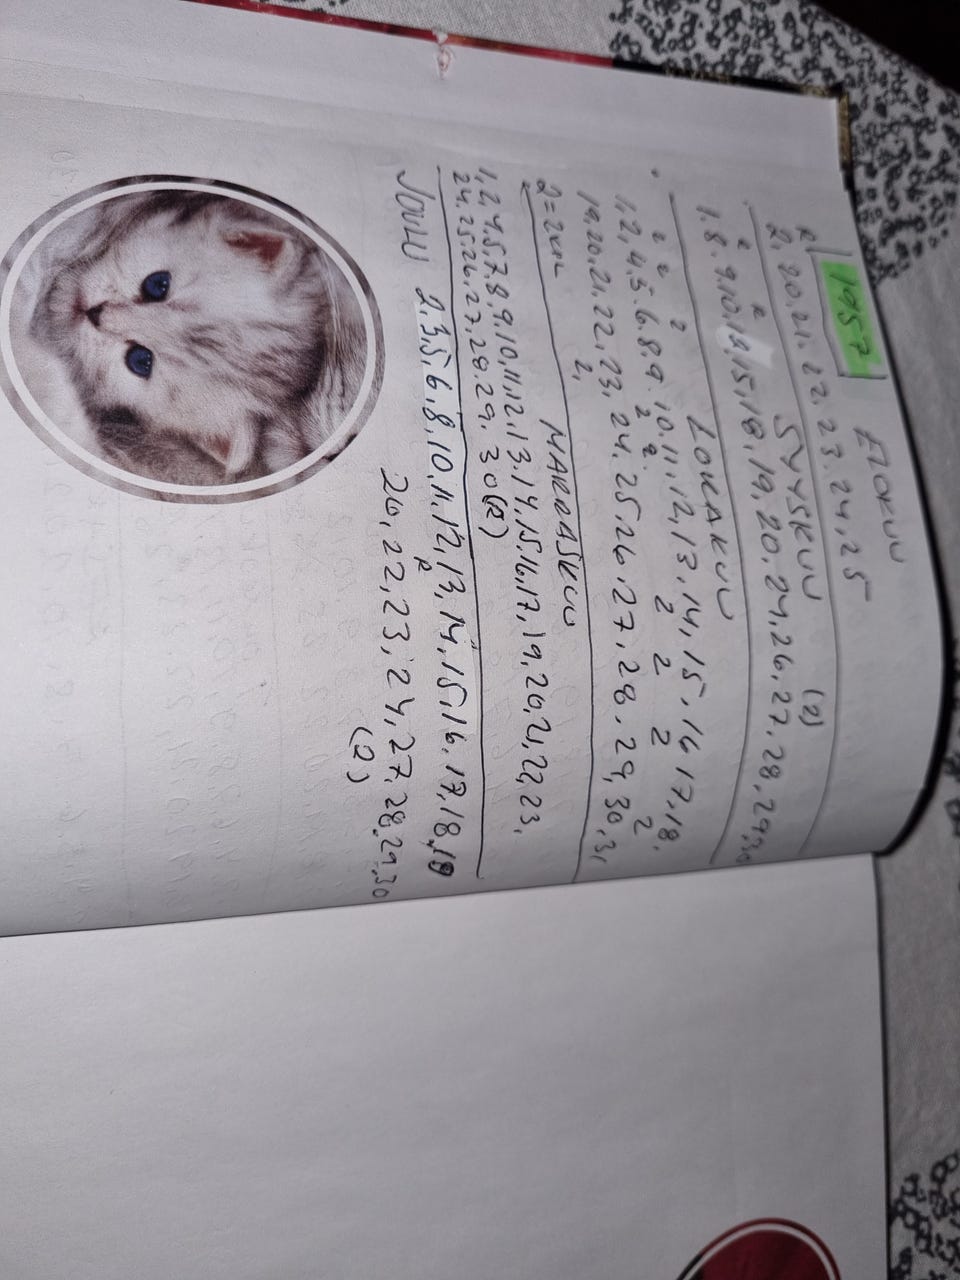 1957
ELOKUU
2, 20.21, 22.23.24,25
SYYSKUU (2)
1.8.9,10.
15,18,19,20,24,26,27,28,29,30
LOKAKUU
1,2,4,5.6.8.9.10.11,12,13,14,15,16,17,18,
19,20,21,22,23,24,25,26,27,28,29,30,31
MARRASKUU
1,2,4,5,7,8,9,10,11,12,13,14,15,16,17,19,20,21,22,23,
24,25,26,27,28,29,30(2)
JOULU 2,3,5,6,8,10,11,12,13,14,15,16,17,18,19
22,23,24,27,28,29,30
(2)